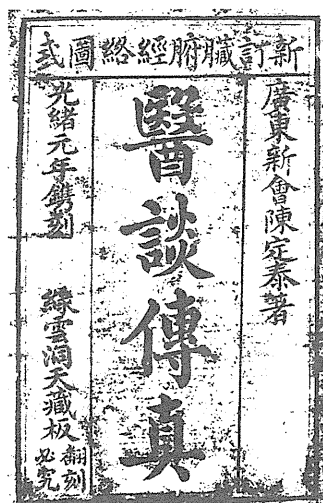 新訂臟腑經絡圖式
廣東新會陳定泰著
醫談傳真
光緒元年鐫刻
綠雲洞天藏板
翻刻
必究